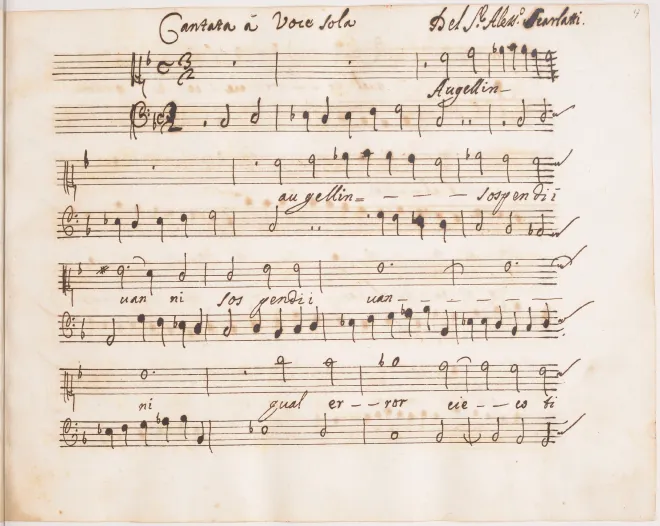 Cantata à Voce sola Del S.r Aless.o Scarlatti. 4
Augellin
augellin= sospendi i
uan ni sos pendi i uan
ni qual er - - ror cie - - co ti